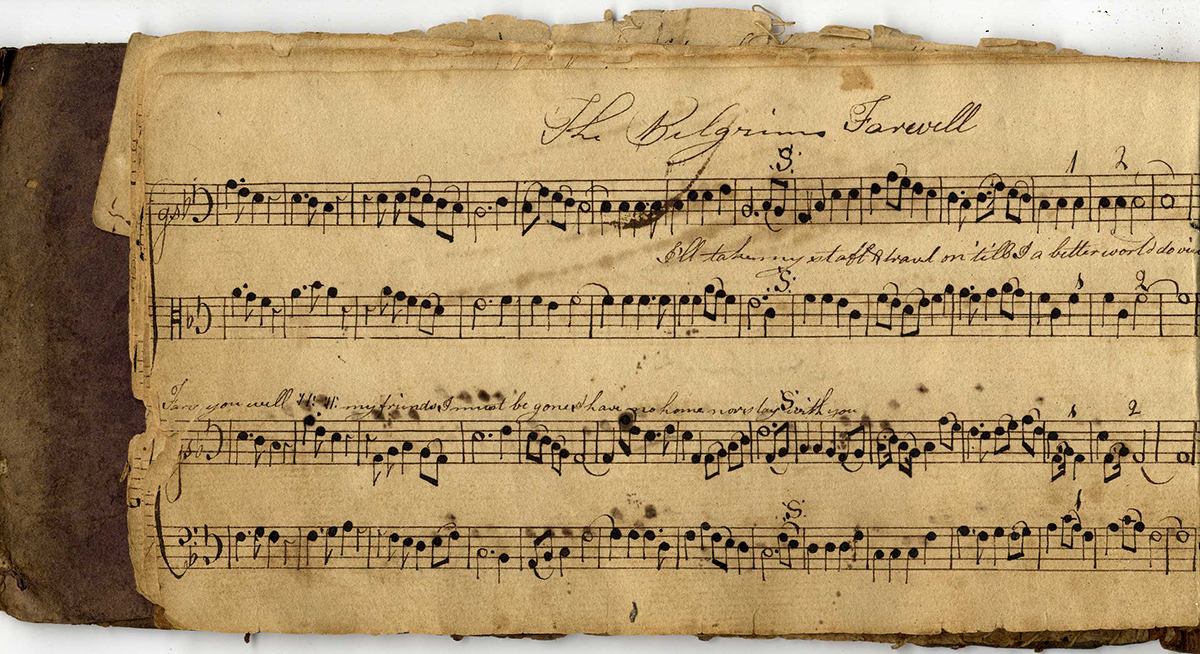 The Pilgrims Farewell
:S:
1 2
I'll take my staff & travl on 'till I a better world do vi
:S:
1 2
Fare you well :/: :/: my friends I must be gone I have no home nor stay with you
:S:
1 2
:S:
1